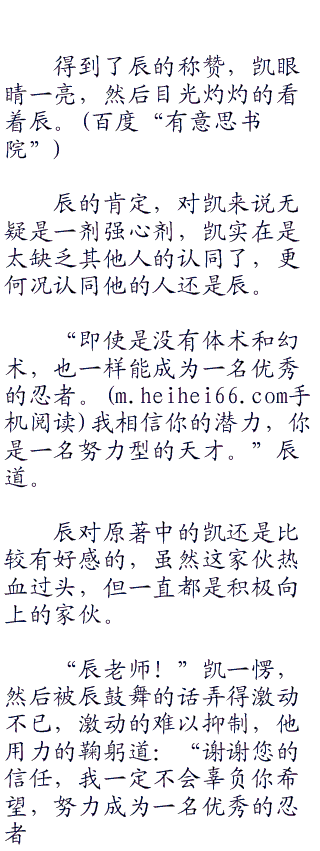 得到了辰的称赞，凯眼
睛一亮，然后目光灼灼的看
着辰。(百度“有意思书
院”)
辰的肯定，对凯来说无
疑是一剂强心剂，凯实在是
太缺乏其他人的认同了，更
何况认同他的人还是辰。
“即使是没有体术和幻
术，也一样能成为一名优秀
的忍者。(m.heihei66.com手
机阅读)我相信你的潜力，你
是一名努力型的天才。”辰
道。
辰对原著中的凯还是比
较有好感的，虽然这家伙热
血过头，但一直都是积极向
上的家伙。
“辰老师！”凯一愣，
然后被辰鼓舞的话弄得激动
不已，激动的难以抑制，他
用力的鞠躬道：“谢谢您的
信任，我一定不会辜负你希
望，努力成为一名优秀的忍
者